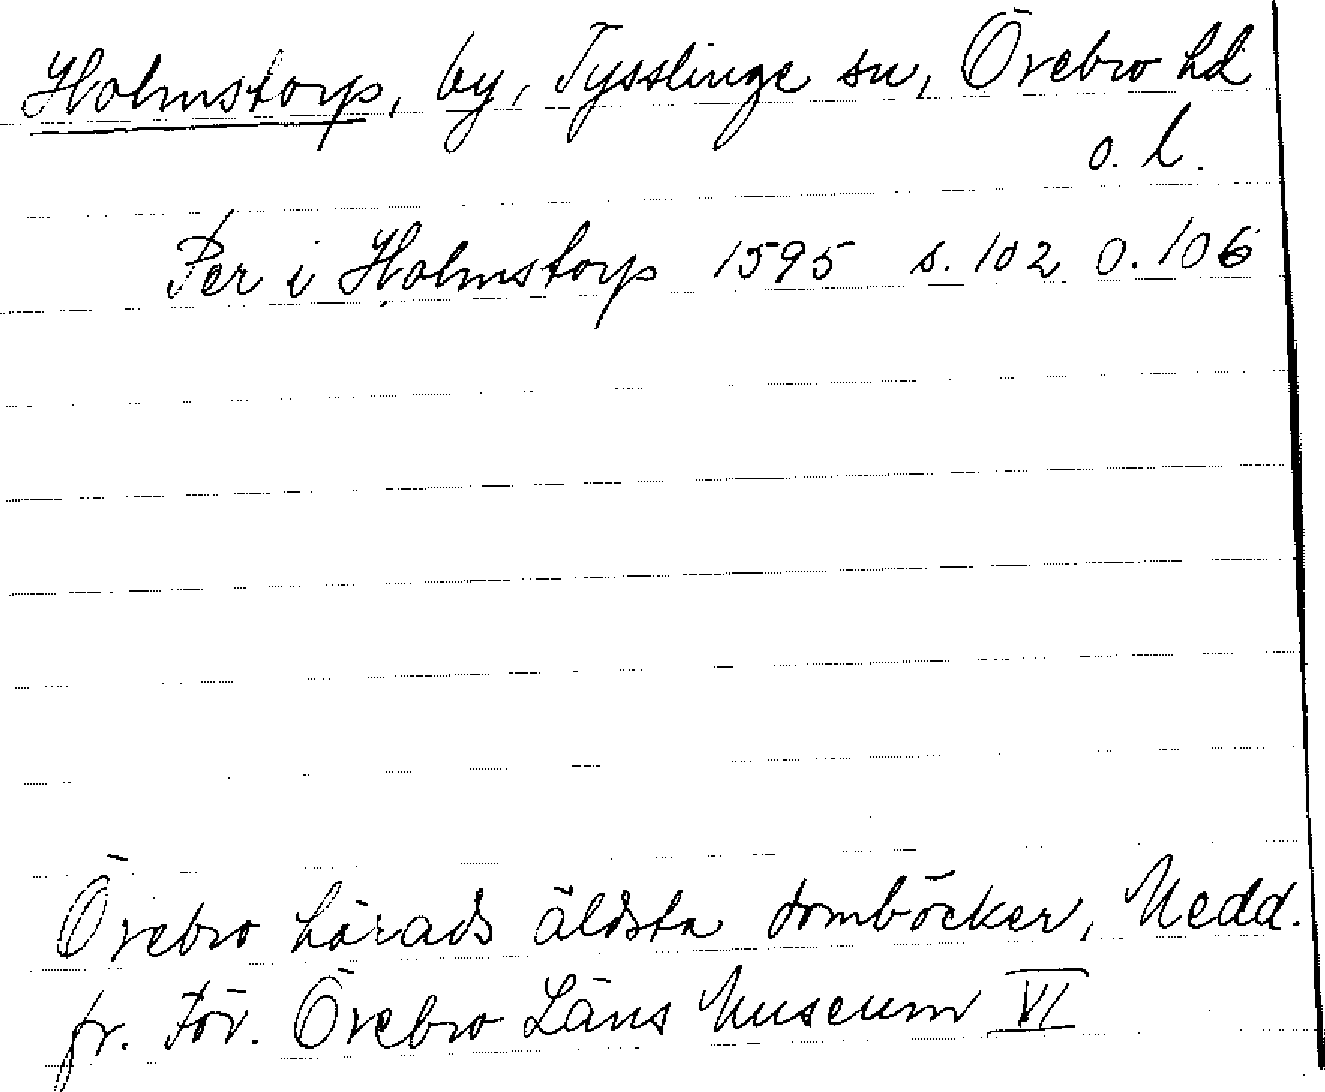 Holmstorp, by, Tysslinge sn, Örebro hd
o. l.
Per i Holmstorp 1595 s. 102 o. 106
Örebro härads äldsta domböcker, Medd.
fr. För. Örebro Läns Museum VI